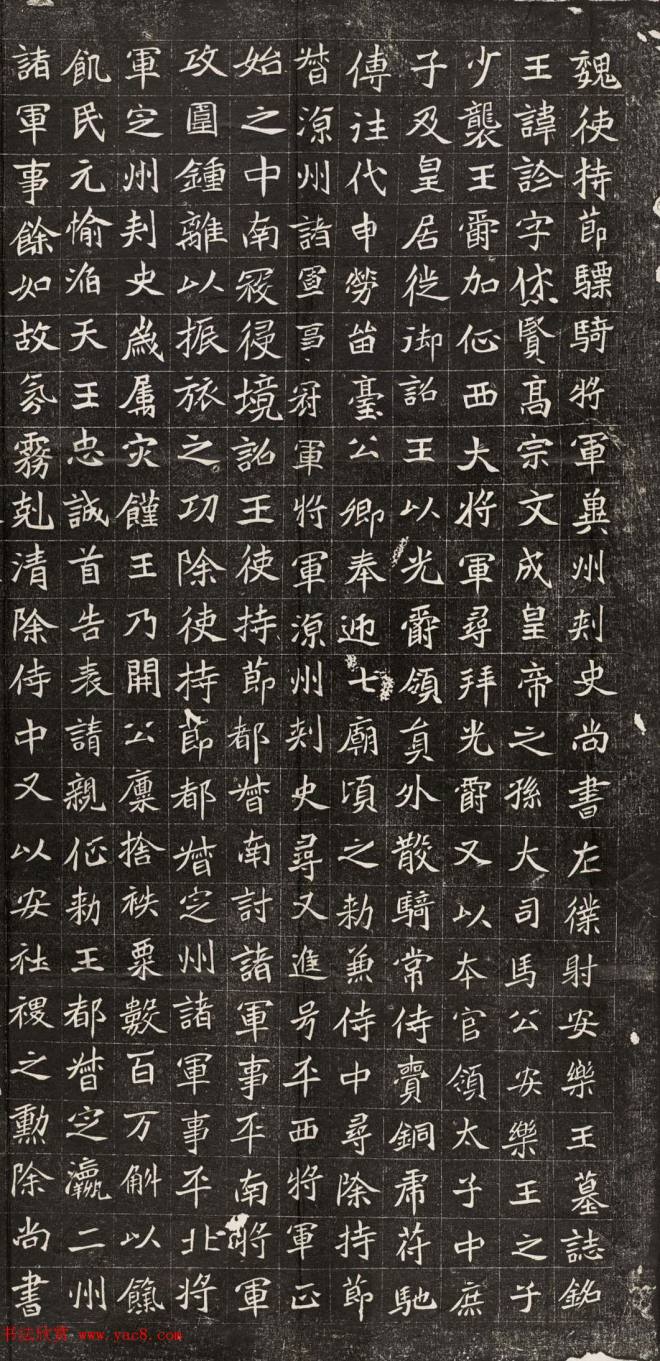 魏使持節驃騎將軍冀州刺史尚書左僕射安樂王墓誌銘
王諱詮字休賢高宗文成皇帝之孫大司馬公安樂王之子
少襲王爵加征西大將軍尋拜光爵又以本官領太子中庶
子及皇居徙御詔王以光爵領員外散騎常侍賫銅虎苻馳
傳往代申勞留臺公卿奉迎七廟頃之勅兼侍中尋除持節
督涼州諸軍事冠軍將軍涼州刺史尋又進号平西將軍正
始之中南寇侵境詔王使持節都督南討諸軍事平南將軍
攻圍鍾離以振旅之功除使持節都督定州諸軍事平北將
軍定州刺史歲屬灾饉王乃開公廩捨秩粟數百万斛以餼
飢民元愉滔天王忠誠首告表請親征勅王都督定瀛二州
諸軍事餘如故氛霧剋清除侍中又以安社稷之勳除尚書
书法欣赏 www.yac8.com